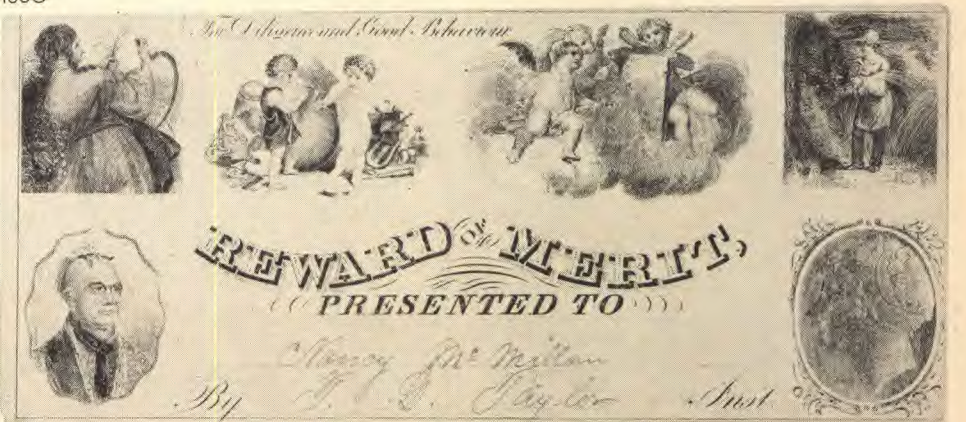 For Diligence and Good Behaviour
REWARD OF MERIT,
PRESENTED TO
Nancy McMillan
By T. D. Taylor Inst